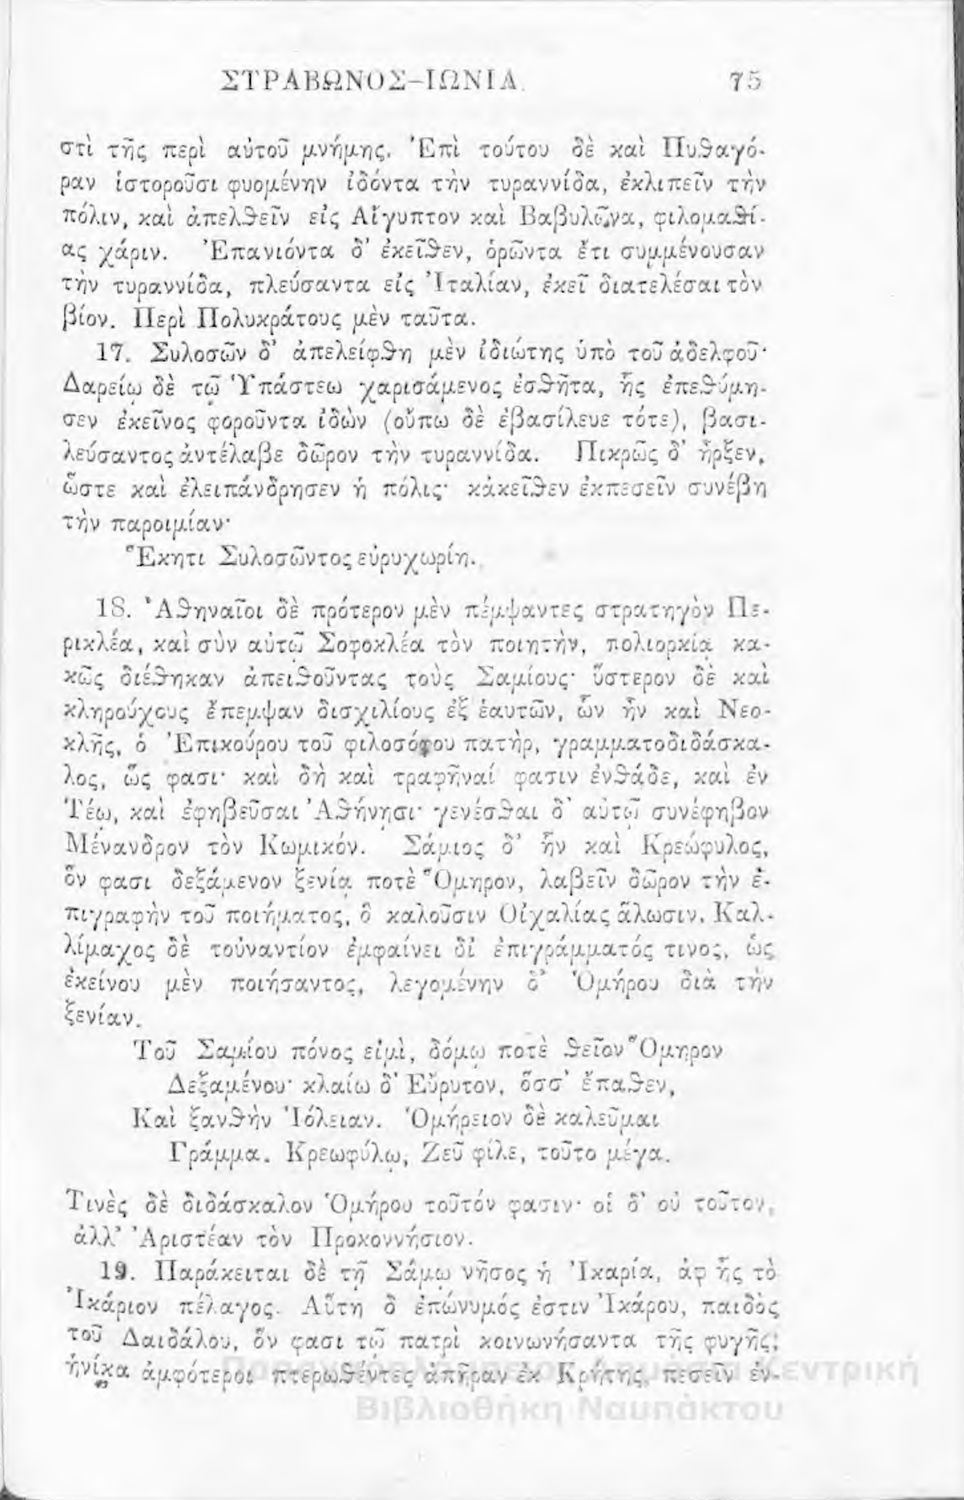 ΣΤΡΑΒΩΝΟΣ-ΙΩΝΙΑ. 75
στὶ τῆς περὶ αὐτοῦ μνήμης. Ἐπὶ τούτου δὲ καὶ Πυθαγό-
ραν ἱστοροῦσι φυομένην ἰδόντα τὴν τυραννίδα, ἐκλιπεῖν τὴν
πόλιν, καὶ ἀπελθεῖν εἰς Αἴγυπτον καὶ Βαβυλῶνα, φιλομαθί-
ας χάριν. Ἐπανιόντα δ' ἐκεῖθεν, ὁρῶντα ἔτι συμμένουσαν
τὴν τυραννίδα, πλεύσαντα εἰς Ἰταλίαν, ἐκεῖ διατελέσαι τὸν
βίον. Περὶ Πολυκράτους μὲν ταῦτα.
17. Συλοσῶν δ' ἀπελείφθη μὲν ἰδιώτης ὑπὸ τοῦ ἀδελφοῦ·
Δαρείῳ δὲ τῷ Ὑπάστεω χαρισάμενος ἐσθῆτα, ἧς ἐπεθύμη-
σεν ἐκεῖνος φοροῦντα ἰδὼν (οὔπω δὲ ἐβασίλευε τότε), βασι-
λεύσαντος ἀντέλαβε δῶρον τὴν τυραννίδα. Πικρῶς δ' ἦρξεν,
ὥστε καὶ ἐλειπάνδρησεν ἡ πόλις· κἀκεῖθεν ἐκπεσεῖν συνέβη
τὴν παροιμίαν·
Ἕκητι Συλοσῶντος εὐρυχωρίη.
18. Ἀθηναῖοι δὲ πρότερον μὲν πέμψαντες στρατηγὸν Πε-
ρικλέα, καὶ σὺν αὐτῷ Σοφοκλέα τὸν ποιητὴν, πολιορκίᾳ κα-
κῶς διέθηκαν ἀπειθοῦντας τοὺς Σαμίους· ὕστερον δὲ καὶ
κληρούχους ἔπεμψαν δισχιλίους ἐξ ἑαυτῶν, ὧν ἦν καὶ Νεο-
κλῆς, ὁ Ἐπικούρου τοῦ φιλοσόφου πατὴρ, γραμματοδιδάσκα-
λος, ὥς φασι· καὶ δὴ καὶ τραφῆναί φασιν ἐνθάδε, καὶ ἐν
Τέῳ, καὶ ἐφηβεῦσαι Ἀθήνησι· γενέσθαι δ' αὐτῷ συνέφηβον
Μένανδρον τὸν Κωμικόν. Σάμιος δ' ἦν καὶ Κρεώφυλος,
ὅν φασι δεξάμενον ξενίᾳ ποτὲ Ὅμηρον, λαβεῖν δῶρον τὴν ἐ-
πιγραφὴν τοῦ ποιήματος, ὃ καλοῦσιν Οἰχαλίας ἅλωσιν. Καλ-
λίμαχος δὲ τοὐναντίον ἐμφαίνει δι' ἐπιγράμματός τινος, ὡς
ἐκείνου μὲν ποιήσαντος, λεγομένην δ' Ὁμήρου διὰ τὴν
ξενίαν.
Τοῦ Σαμίου πόνος εἰμὶ, δόμῳ ποτὲ θεῖον Ὅμηρον
Δεξαμένου· κλαίω δ' Εὔρυτον, ὅσσ' ἔπαθεν,
Καὶ ξανθὴν Ἰόλειαν. Ὁμήρειον δὲ καλεῦμαι
Γράμμα. Κρεωφύλῳ, Ζεῦ φίλε, τοῦτο μέγα.
Τινὲς δὲ διδάσκαλον Ὁμήρου τοῦτόν φασιν· οἱ δ' οὐ τοῦτον,
ἀλλ' Ἀριστέαν τὸν Προκοννήσιον.
19. Παράκειται δὲ τῇ Σάμῳ νῆσος ἡ Ἰκαρία, ἀφ' ἧς τὸ
Ἰκάριον πέλαγος. Αὕτη δ' ἐπώνυμός ἐστιν Ἰκάρου, παιδὸς
τοῦ Δαιδάλου, ὅν φασι τῷ πατρὶ κοινωνήσαντα τῆς φυγῆς,
ἡνίκα ἀμφότεροι πτερωθέντες ἀπῆραν ἐκ Κρήτης, πεσεῖν ἐν-
Κεντρική
Βιβλιοθήκη Ναυπάκτου